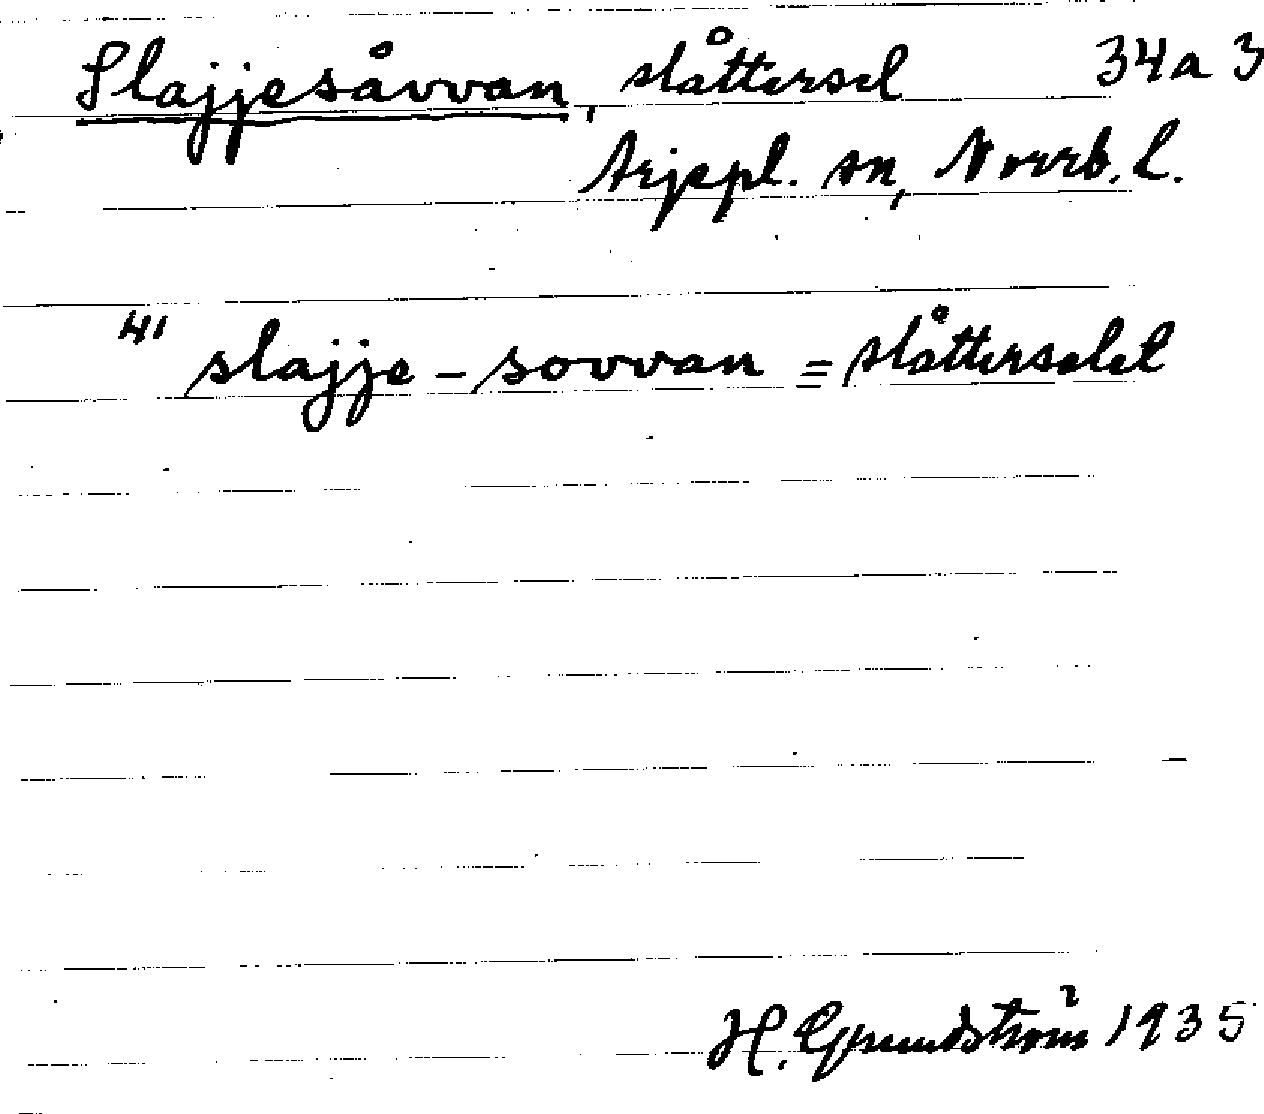 Slajjesåvvan, slåttersel 34a 3
Arjepl. sn, Norrb. l.
41 slajje-sovvan = slåtterselet
H. Grundström 1935